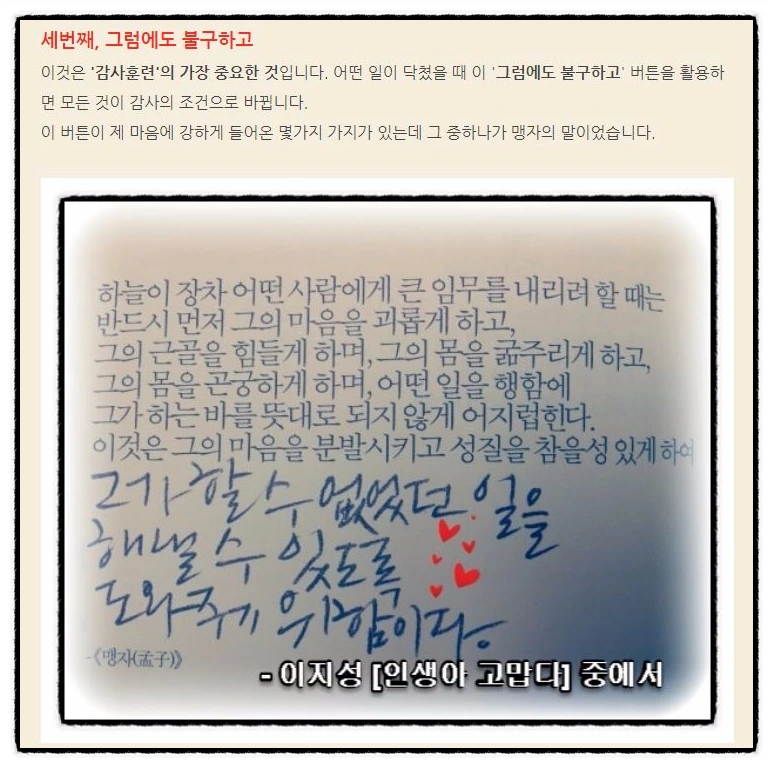 세번째, 그럼에도 불구하고
이것은 '감사훈련'의 가장 중요한 것입니다. 어떤 일이 닥쳤을 때 이 '그럼에도 불구하고' 버튼을 활용하
면 모든 것이 감사의 조건으로 바뀝니다.
이 버튼이 제 마음에 강하게 들어온 몇가지 가지가 있는데 그 중하나가 맹자의 말이었습니다.
하늘이 장차 어떤 사람에게 큰 임무를 내리려 할 때는
반드시 먼저 그의 마음을 괴롭게 하고,
그의 근골을 힘들게 하며, 그의 몸을 굶주리게 하고,
그의 몸을 곤궁하게 하며, 어떤 일을 행함에
그가 하는 바를 뜻대로 되지 않게 어지럽힌다.
이것은 그의 마음을 분발시키고 성질을 참을성 있게 하여
그가 할 수 없었던 일을
해낼 수 있도록
도와주기 위함이다.
-《맹자(孟子)》
- 이지성 [인생아 고맙다] 중에서